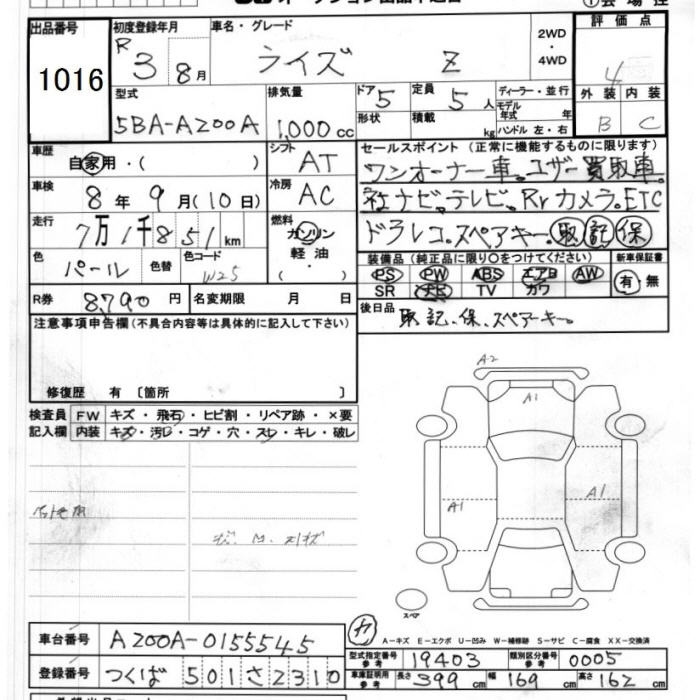 出品番号 初度登録年月 車名・グレード 2WD・4WD 評価点
1016 R3 8月 ライズ Z 4
型式 排気量 ドア 5 定員 5人 ディーラー・並行 外装 内装
5BA-A200A 1,000cc 形状 積載 kg モデル年式 年 ハンドル 左・右 B C
車歴 自家用・( ) シフト AT セールスポイント (正常に機能するものに限ります)
ワンオーナー車。ユーザー買取車。
車検 8年 9月(10日) 冷房 AC
社ナビ、テレビ。Rrカメラ。ETC
走行 7万1千851km 燃料 ガソリン 軽油・( )
ドラレコ。スペアキー。取 記 保
色 パール 色替 色コード W25
装備品 (純正品に限り○をつけてください) 新車保証書
PS PW ABS エアB AW 有・無
SR ナビ TV カワ
R券 8,790円 名変期限 月 日
後日品 取、記、保、スペアーキー。
注意事項申告欄(不具合内容等は具体的に記入して下さい)
修復歴 有 〔箇所 〕
検査員 FW キズ・飛石・ヒビ割・リペア跡・×要
記入欄 内装 キズ・汚レ・コゲ・穴・スレ・キレ・破レ
A2
A1
A1
A1
スペア
A-キズ E-エクボ U-凹み W-補修跡 S-サビ C-腐食 XX-交換済
車台番号 A200A-0155545
型式指定番号 参考 19403 類別区分番号 参考 0005
登録番号 つくば 501 さ 2310
車庫証明用 参考 長さ 399cm 幅 169cm 高さ 162cm